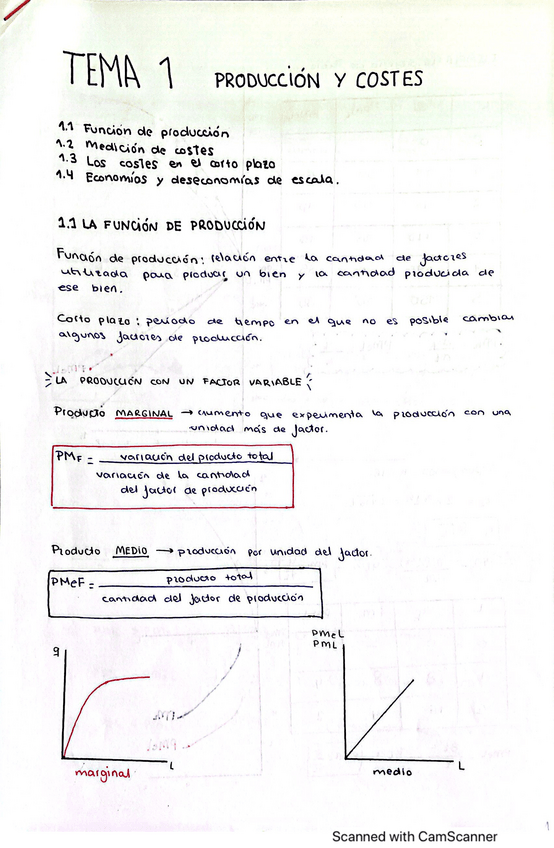 TEMA 1 PRODUCCIÓN Y COSTES
1.1 Función de producción
1.2 Medición de costes
1.3 Los costes en el corto plazo
1.4 Economíos y deseconomías de escala.
1.1 LA FUNCIÓN DE PRODUCCIÓN
Función de producción: relación entre la cantidad de factores
utilizada para producir un bien y la cantidad producida de
ese bien.
Corto plazo: periodo de tiempo en el que no es posible cambiar
algunos factores de producción.
LA PRODUCCIÓN CON UN FACTOR VARIABLE
Producto MARGINAL → aumento que experimenta la producción con una
unidad más de factor.
PMF = variación del producto total
variación de la cantidad
del factor de producción
Producto MEDIO → producción por unidad del factor.
PMeF = producto total
cantidad del factor de producción
q
L
marginal
PMeL
PML
L
medio
1
Scanned with CamScanner